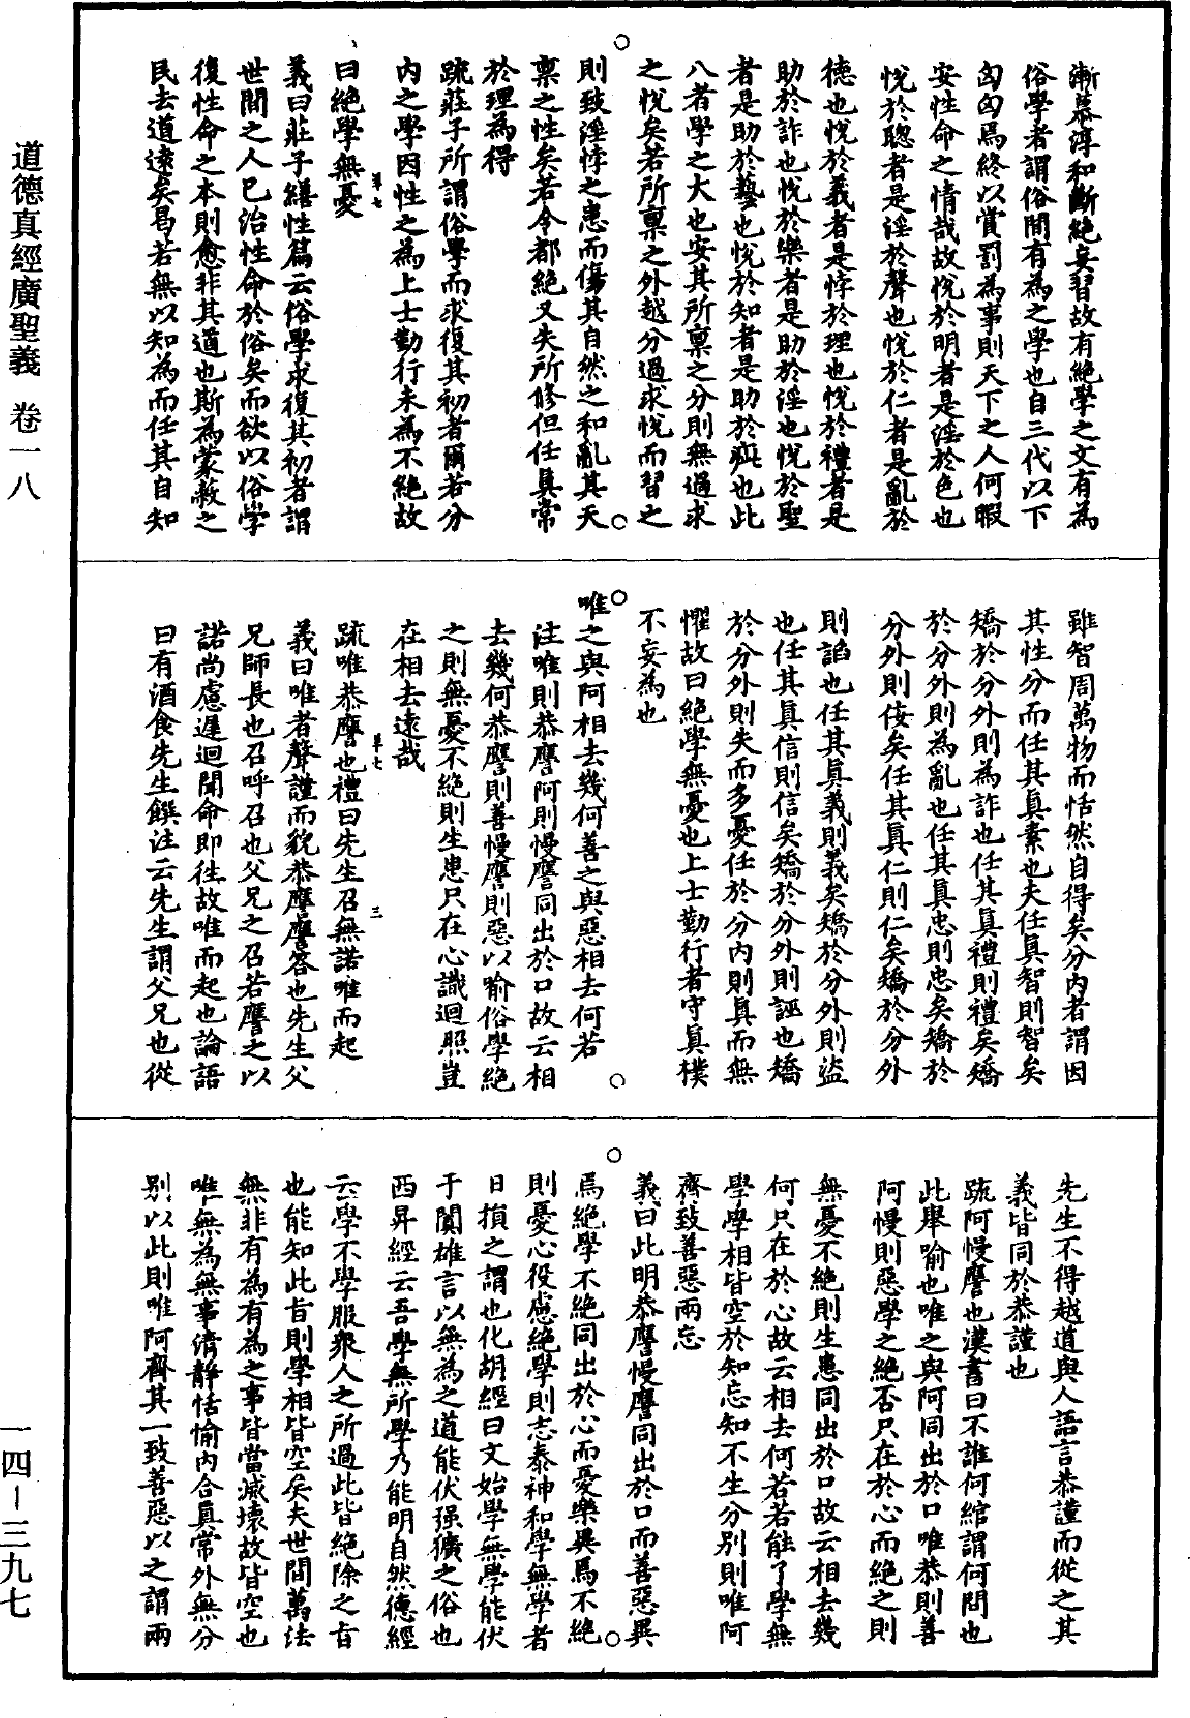 漸慕淳和斷絕妄習故有絕學之文有為
俗學者謂俗間有為之學也自三代以下
匈匈焉終以賞罰為事則天下之人何暇
安性命之情哉故悅於明者是淫於色也
悅於聰者是淫於聲也悅於仁者是亂於
德也悅於義者是悖於理也悅於禮者是
助於詐也悅於樂者是助於淫也悅於聖
者是助於藝也悅於知者是助於疵也此
八者學之大也安其所稟之分則無過求
之悅矣若所稟之外越分過求悅而習之
則致淫悖之患而傷其自然之和亂其天
稟之性矣若令都絕又失所修但任真常
於理為得
疏莊子所謂俗學而求復其初者爾若分
內之學因性之為上士勤行未為不絕故
曰絕學無憂
義曰莊子繕性篇云俗學求復其初者謂
世間之人已治性命於俗矣而欲以俗學
復性命之本則愈非其道也斯為蒙蔽之
民去道遠矣曷若無以知為而任其自知
雖智周萬物而恬然自得矣分內者謂因
其性分而任其真素也夫任真智則智矣
矯於分外則為詐也任其真禮則禮矣矯
於分外則為亂也任其真忠則忠矣矯於
分外則佞矣任其真仁則仁矣矯於分外
則諂也任其真義則義矣矯於分外則盜
也任其真信則信矣矯於分外則誣也矯
於分外則失而多憂任於分內則真而無
懼故曰絕學無憂也上士勤行者守真樸
不妄為也
唯之與阿相去幾何善之與惡相去何若
注唯則恭譍阿則慢譍同出於口故云相
去幾何恭譍則善慢譍則惡以喻俗學絕
之則無憂不絕則生患只在心識迴照豈
在相去遠哉
疏唯恭譍也禮曰先生召無諾唯而起
義曰唯者聲謹而貌恭譍譍答也先生父
兄師長也召呼召也父兄之召若譍之以
諾尚慮遲迴聞命即往故唯而起也論語
曰有酒食先生饌注云先生謂父兄也從
先生不得越道與人語言恭謹而從之其
義皆同於恭謹也
疏阿慢譍也漢書曰不誰何綰謂何問也
此舉喻也唯之與阿同出於口唯恭則善
阿慢則惡學之絕否只在於心而絕之則
無憂不絕則生患同出於口故云相去幾
何只在於心故云相去何若若能了學無
學學相皆空於知忘知不生分別則唯阿
齊致善惡兩忘
義曰此明恭譍慢譍同出於口而善惡異
焉絕學不絕同出於心而憂樂異焉不絕
則憂心役慮絕學則志泰神和學無學者
日損之謂也化胡經曰文始學無學能伏
于闐雄言以無為之道能伏强獷之俗也
西昇經云吾學無所學乃能明自然德經
云學不學服眾人之所過此皆絕除之旨
也能知此旨則學相皆空矣夫世間萬法
無非有為有為之事皆當滅壞故皆空也
唯無為無事清靜恬愉內合真常外無分
別以此則唯阿齊其一致善惡以之謂兩
道德真經廣聖義 卷一八
一四－三九七